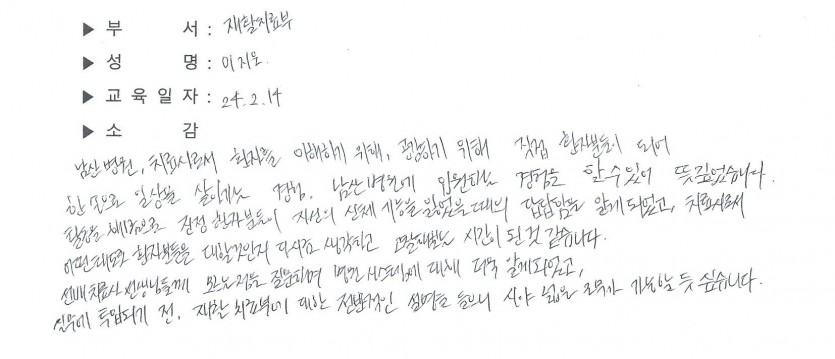 ▶ 부 서 : 재활치료부
▶ 성 명 : 이지운
▶ 교 육 일 자 : 24. 2. 14
▶ 소 감
남산병원, 치료사로서 환자를 이해하기 위해, 공감하기 위해 직접 환자분들이 되어
한 손으로 일상을 살아가는 경험, 남산병원에 입원하는 경험을 할 수 있어 뜻깊었습니다.
진정 환자분들이 자신의 신체 기능을 잃었을 때의 답답함을 알게 되었고, 치료사로서
어떤 태도로 환자분들을 대할것인지 다시금 생각하고 시간이 된 것 같습니다.
선배 치료사 선생님들께 모르는 것을 질문하며 병원 시스템에 대해 더욱 알게되었고,
실무에 투입되기 전, 재활 치료부에 대한 전반적인 설명을 들으니 시야 넓은 근무가 가능할 듯 싶습니다.